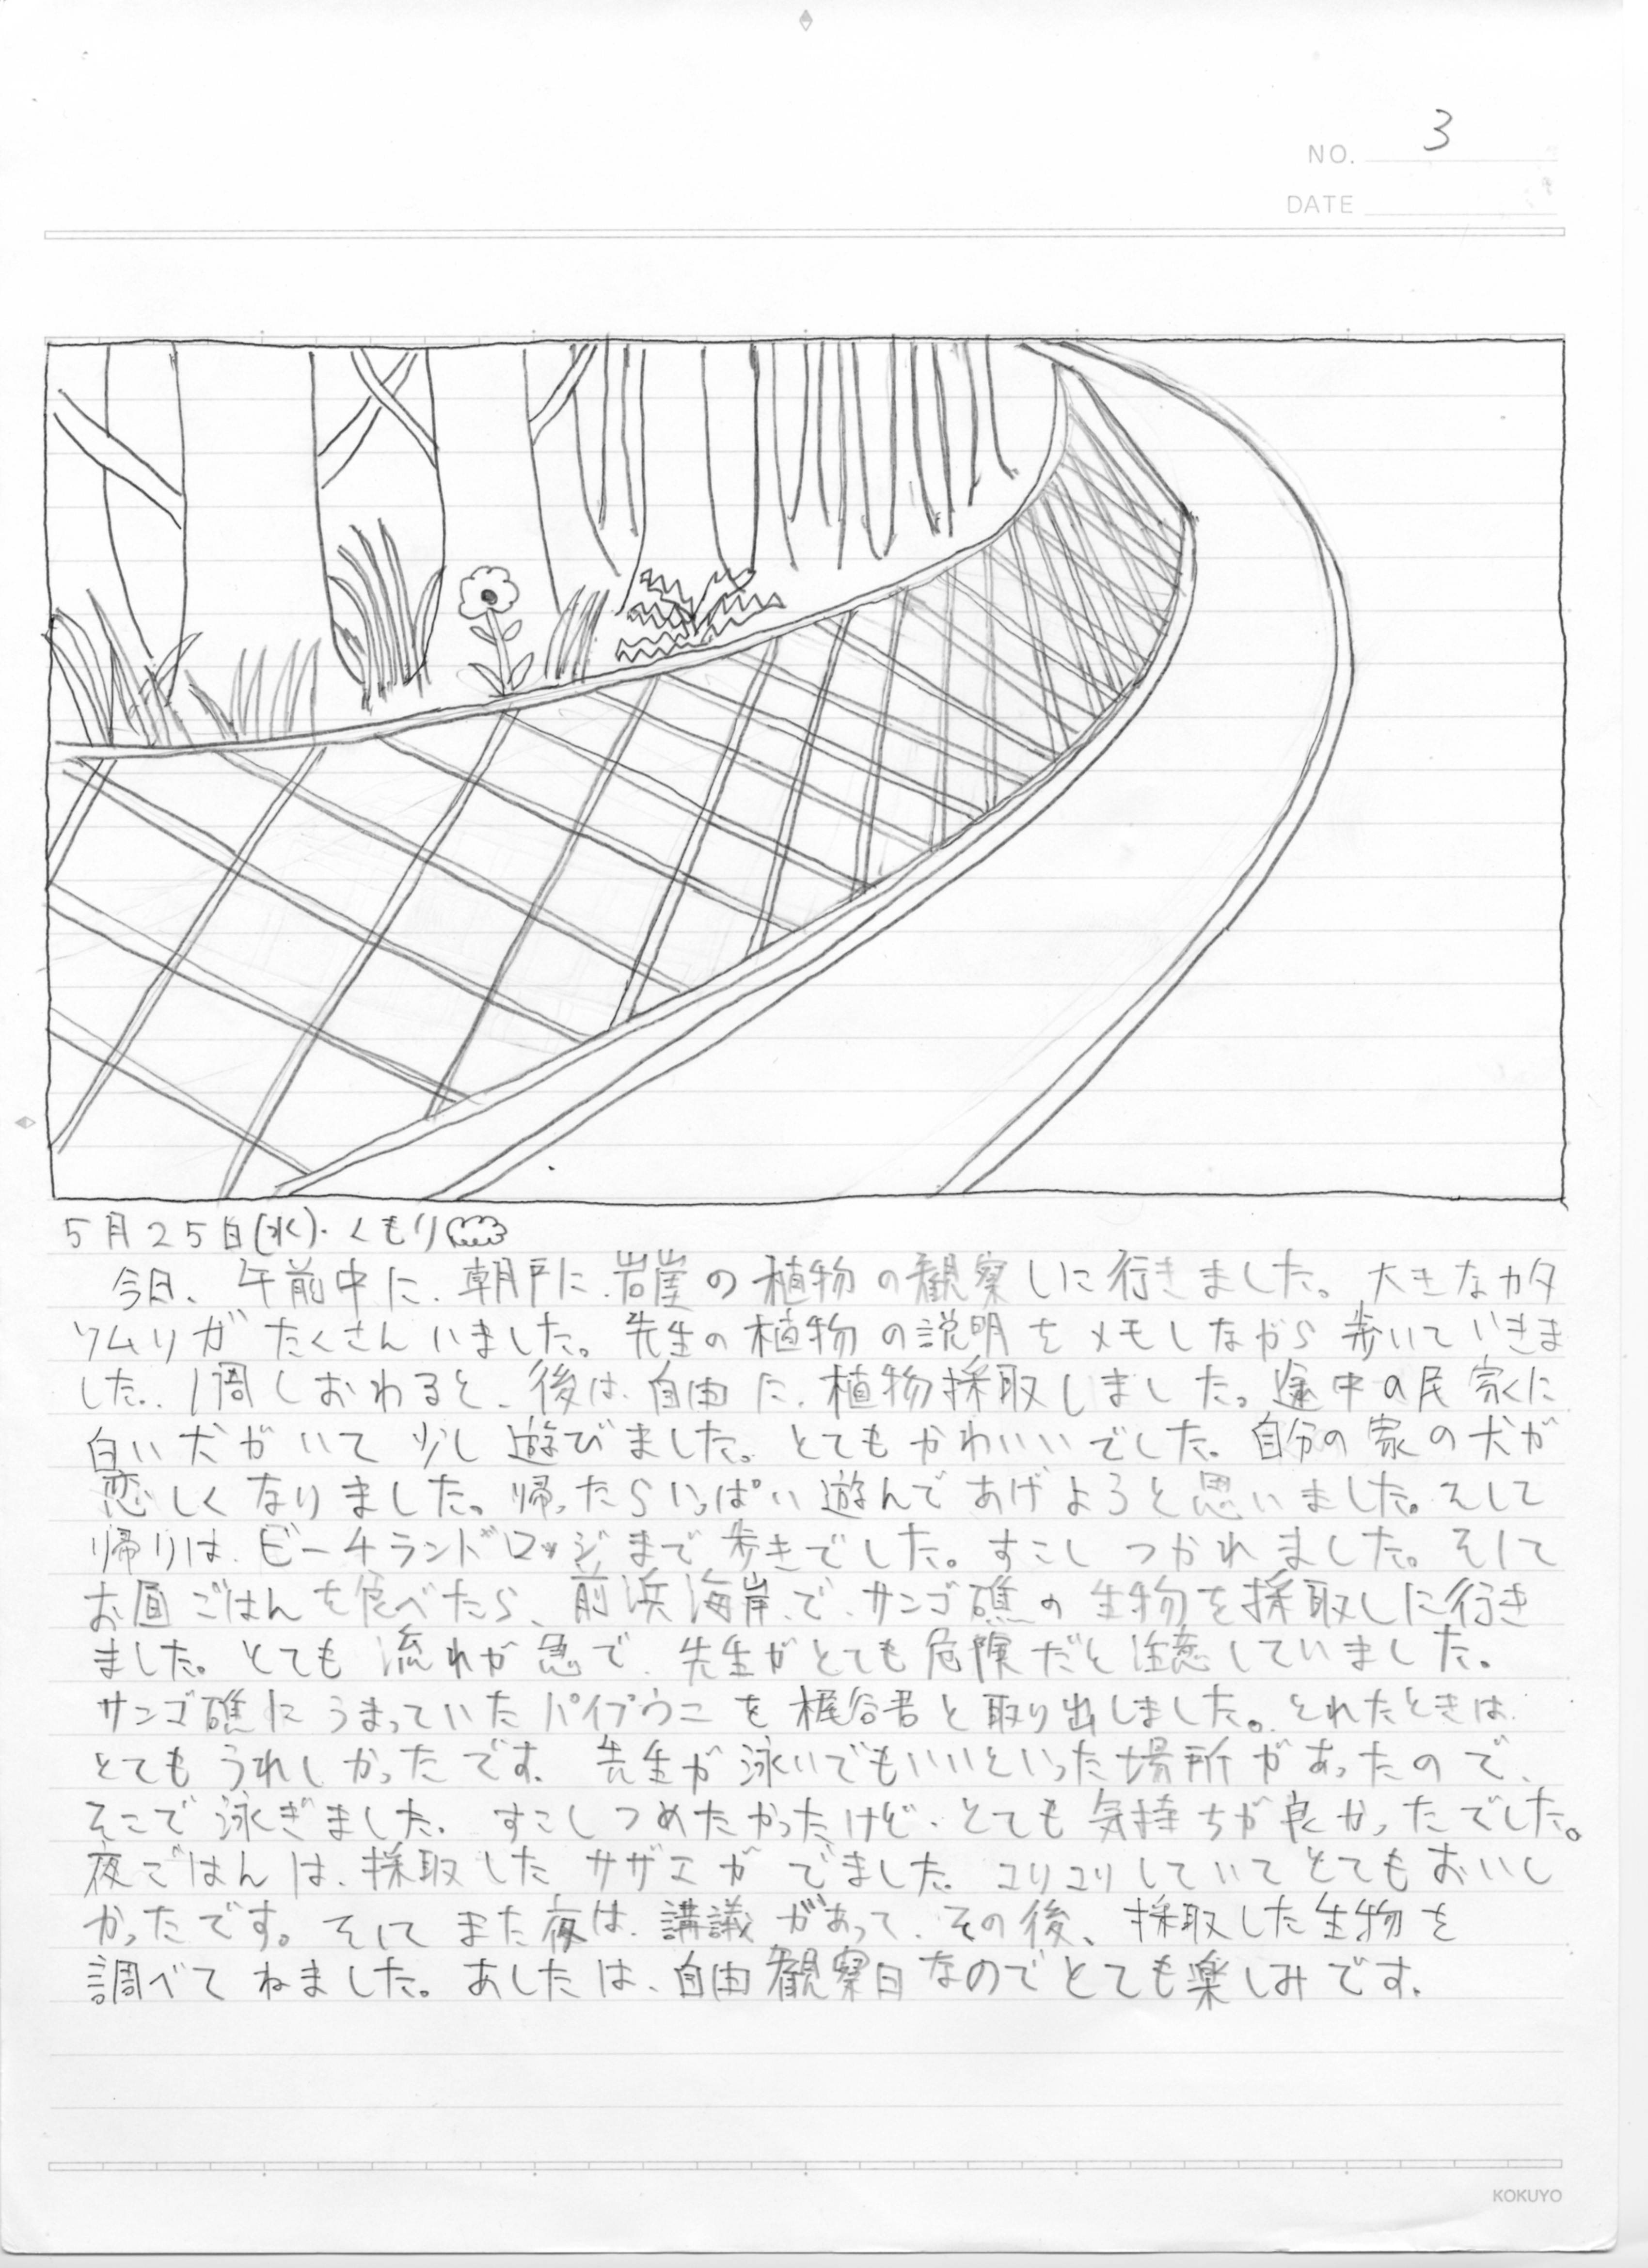 NO. 3
DATE
5月25日(水)・くもり
今日、午前中に、朝戸に、岩崖の植物の観察しに行きました。大きなカタ
ツムリがたくさんいました。先生の植物の説明をメモしながら歩いていきま
した。1周しおわると、後は、自由に、植物採取しました。途中の民家に
白い犬がいて少し遊びました。とてもかわいいでした。自分の家の犬が
恋しくなりました。帰ったらいっぱい遊んであげようと思いました。そして
帰りは、ビーチランドロッジまで歩きでした。すこしつかれました。そして
お昼ごはんを食べたら、前浜海岸で、サンゴ礁の生物を採取しに行き
ました。とても流れが急で、先生がとても危険だと注意していました。
サンゴ礁にうまっていたパイプウニを梶谷君と取り出しました。とれたときは、
とてもうれしかったです。先生が泳いでもいいといった場所があったので、
そこで泳ぎました。すこしつめたかったけど、とても気持ちが良かったでした。
夜ごはんは、採取したサザエがでました。コリコリしていてとてもおいし
かったです。そしてまた夜は、講議があって、その後、採取した生物を
調べてねました。あしたは、自由観察日なのでとても楽しみです。
KOKUYO